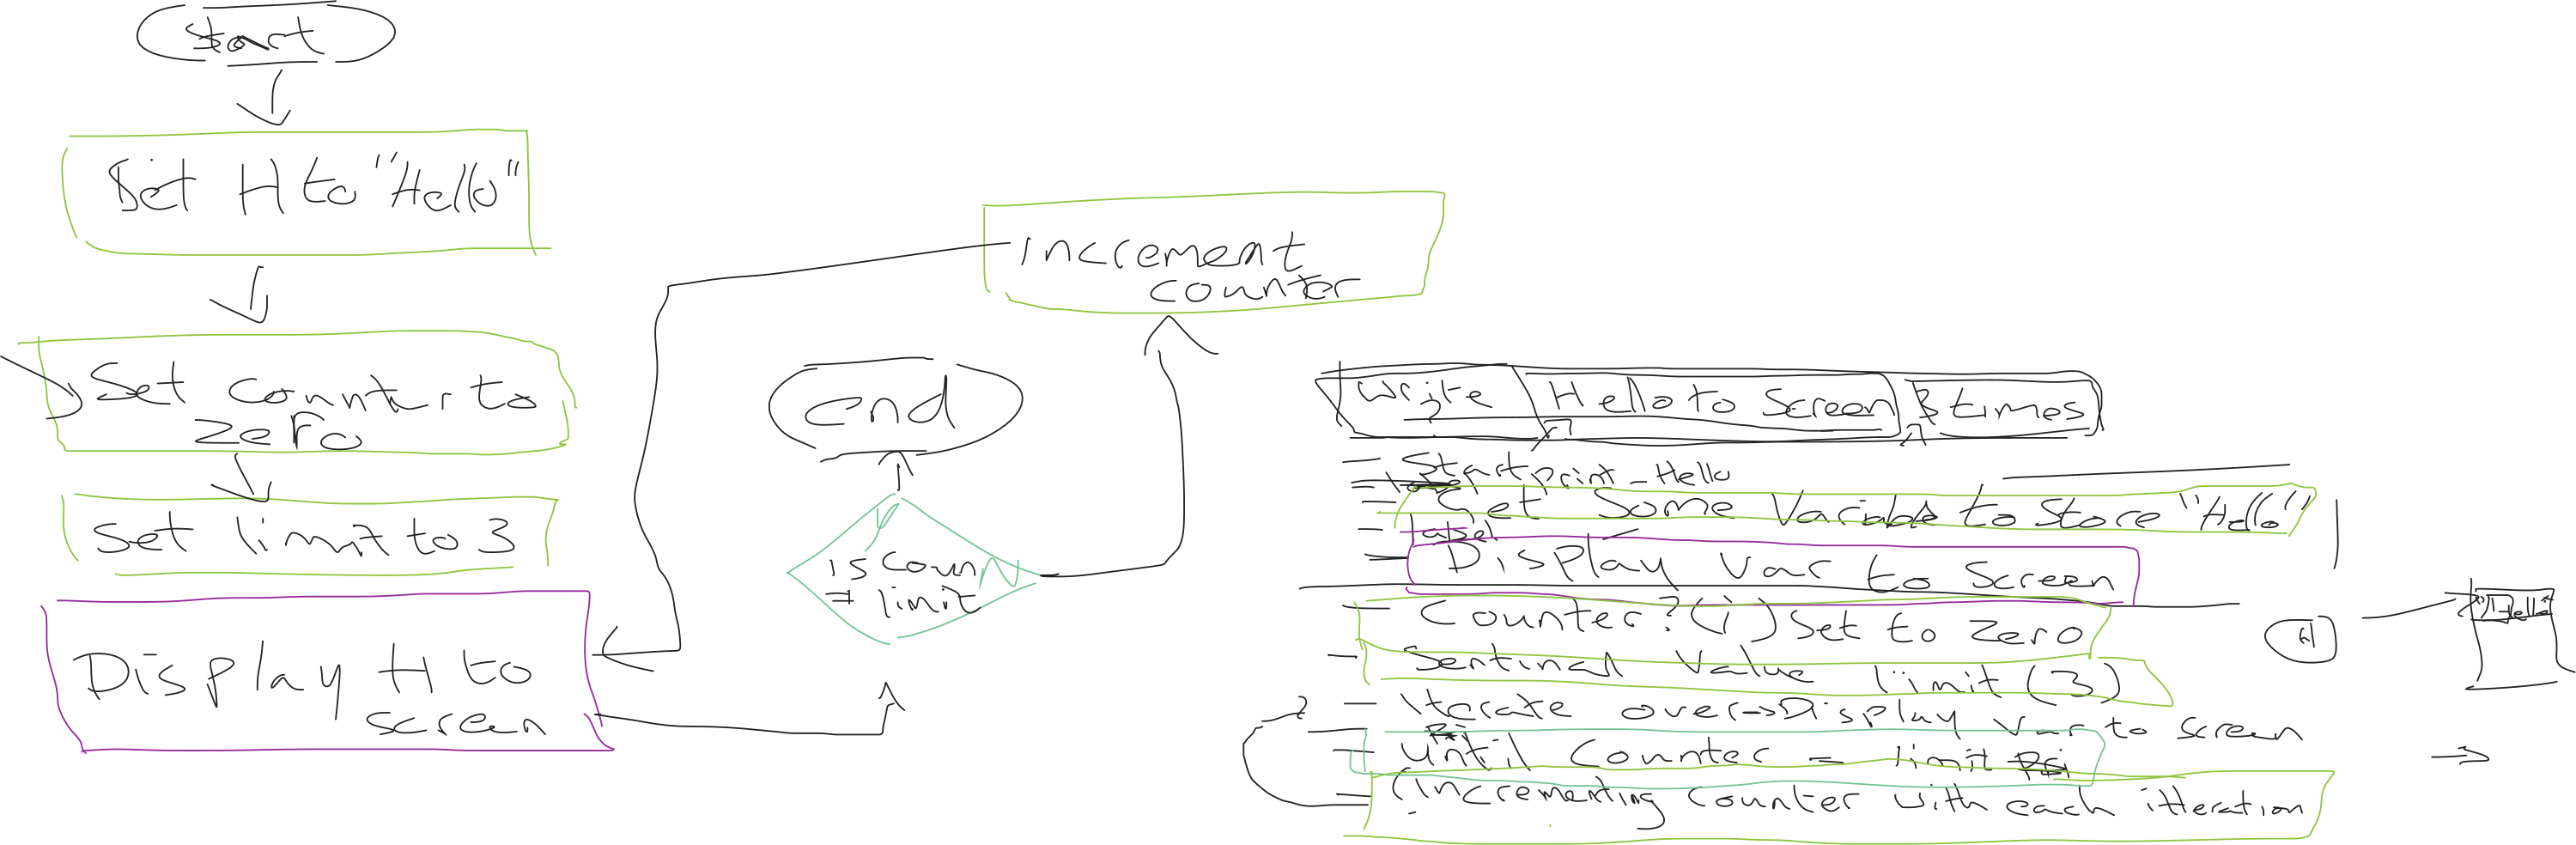 Start
Set H to "Hello"
Set counter to
zero
Set limit to 3
Display H to
screen
increment
counter
end
Y
is coun
= limit
N
Write Hello to Screen 3 times
Start print_Hello
Set Some Variable to Store "Hello"
label
Display Var to Screen
Counter? (i) Set to Zero
Sentinal Value limit (3)
Iterate over → Display Var to screen
until Counter = limit
(incrementing counter with each itteration
H
"Hello"